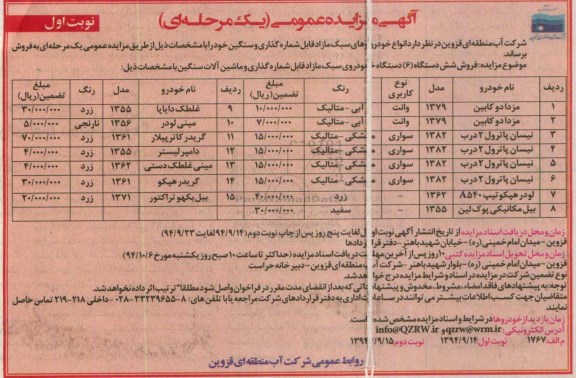 آگهی مزایده عمومی (یک مرحله‌ای)
نوبت اول
شرکت آب منطقه‌ای قزوین در نظر دارد انواع خودروهای سبک مازاد قابل شماره گذاری و سنگین خود را با مشخصات ذیل از طریق مزایده عمومی یک مرحله ای به فروش
برساند.
موضوع مزایده: فروش شش دستگاه (۶) دستگاه خودروی سبک مازاد قابل شماره گذاری و ماشین آلات سنگین با مشخصات ذیل:
ردیف نام خودرو مدل نوع کاربری رنگ مبلغ تضمین(ریال) ردیف نام خودرو مدل رنگ مبلغ تضمین(ریال)
۱ مزدا دو کابین ۱۳۷۹ وانت آبی - متالیک ۱۰/۰۰۰/۰۰۰ ۹ غلطک دایناپا ۱۳۵۵ زرد ۳۰/۰۰۰/۰۰۰
۲ مزدا دو کابین ۱۳۷۹ وانت آبی - متالیک ۷/۰۰۰/۰۰۰ ۱۰ مینی لودر ۱۳۵۶ نارنجی ۵/۰۰۰/۰۰۰
۳ نیسان پاترول ۲ درب ۱۳۸۲ سواری مشکی - متالیک ۱۵/۰۰۰/۰۰۰ ۱۱ گریدر کاترپیلار ۱۳۶۱ زرد ۷۰/۰۰۰/۰۰۰
۴ نیسان پاترول ۲ درب ۱۳۸۲ سواری مشکی - متالیک ۱۵/۰۰۰/۰۰۰ ۱۲ دامپر لیستر ۱۳۵۵ زرد ۴/۰۰۰/۰۰۰
۵ نیسان پاترول ۲ درب ۱۳۸۲ سواری مشکی - متالیک ۱۵/۰۰۰/۰۰۰ ۱۳ مینی غلطک دستی ۱۳۶۲ زرد ۴/۰۰۰/۰۰۰
۶ نیسان پاترول ۲ درب ۱۳۸۲ سواری مشکی - متالیک ۱۵/۰۰۰/۰۰۰ ۱۴ گریدر هپکو ۱۳۶۱ زرد ۳۰/۰۰۰/۰۰۰
۷ لودر هپکو تیپ A۵۴۰ ۱۳۶۲ - زرد ۱۵ بیل بکهو تراکتور ۱۳۷۱ زرد ۲۰/۰۰۰/۰۰۰
۸ بیل مکانیکی پوک لین ۱۳۵۵ - سفید ۳۰/۰۰۰/۰۰۰
زمان و محل دریافت اسناد مزایده از تاریخ انتشار آگهی نوبت اول لغایت پنج روز پس از چاپ نوبت دوم (۹۴/۹/۱۴ لغایت ۹۴/۹/۲۳)
قزوین - میدان امام خمینی (ره) - خیابان شهید باهنر - دفتر قراردادها
زمان و محل تحویل اسناد مزایده کتبی ۱۰ روز پس از آخرین مهلت دریافت اسناد مزایده (حداکثر تا ساعت ۱۰ صبح روز یکشنبه مورخ ۹۴/۱۰/۶)
قزوین - میدان امام خمینی (ره) - بلوار شهید باهنر - شرکت آب منطقه‌ای قزوین - دبیرخانه حراست
نوع تضمین شرکت در مزایده در اسناد و شرایط مزایده درج خواهد شد.
توجه: به پیشنهادهای فاقد امضاء، مشروط، مخدوش و پیشنهاداتی که بعد از انقضای مدت مقرر در فراخوان واصل شود مطلقا ترتیب اثر داده نخواهد شد.
متقاضیان جهت کسب اطلاعات بیشتر می توانند در ساعات اداری به دفتر قراردادهای شرکت مراجعه یا با تلفن های: ۸-۳۳۲۲۹۶۵۵-۰۲۸ داخلی ۲۱۸-۲۱۹ تماس حاصل
نمایند
زمان بازدید از خودروها در شرایط و اسناد مزایده مشخص شده است.
آدرس الکترونیکی: qzrw@wrm.ir و info@QZRW.ir
م الف: ۱۷۶۷ نوبت اول ۱۳۹۴/۹/۱۴ نوبت دوم ۱۳۹۴/۹/۱۵
روابط عمومی شرکت آب منطقه‌ای قزوین